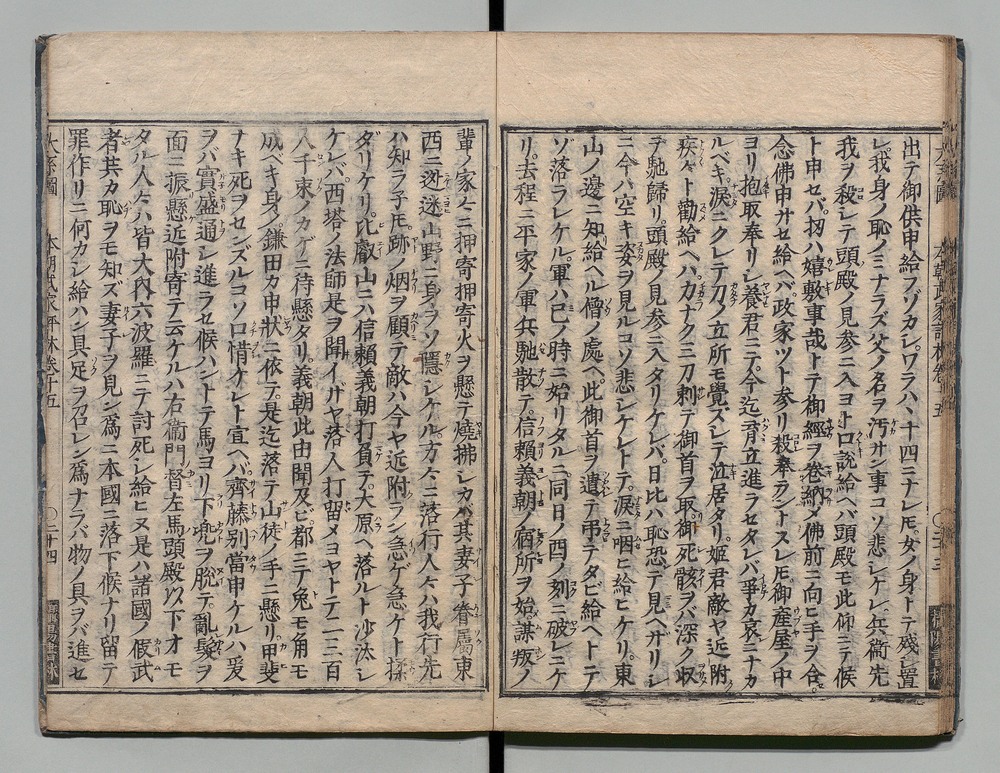 出テ御供申給フゾカシ。ワラハ、十四ニナレ𪜈。女ノ身トテ殘シ置
レ我身ノ恥ノミナラズ父ノ名ヲ汚サン事コソ悲シケレ。兵衞先
我ヲ殺シテ頭殿ノ見参ニ入ヨト口說給ヘバ頭殿モ此仰ニテ候
ト申セバ。扨ハ嬉敷事哉トテ御經ヲ卷納メ佛前ニ向ヒ手ヲ合。
念佛申サセ給ヘバ政家ツト参リ殺奉ラントスレ𪜈。御産屋ノ中
ヨリ抱取奉リシ養君ニテ今迄育立進ラセタレバ爭カ哀ニナカ
ルベキ。淚ニクレテ刀ノ立所モ覺ズシテ泣居タリ。姫君敵ヤ近附
疾々ト勸給ヘハ。力ナク三刀刺テ御首ヲ取。御死骸ヲバ深ク收
テ馳歸リ。頭殿ノ見参ニ入タリケレバ。日比ハ恥恐テ見ヘザリシ
ニ今ハ空キ姿ヲ見ルコソ悲シケレトテ。淚ニ咽ヒ給ヒケリ。東
山ノ邊ニ知給ヘル僧ノ處ヘ。此御首ヲ遣テ弔テタビ給ヘトテ
ゾ落ラレケル。軍ハ己ノ時ニ始リタルニ同日ノ酉ノ刻ニ破レニケ
リ。去程ニ平家ノ軍兵馳散テ。信賴義朝ノ宿所ヲ始。謀叛ノ
輩ノ家々ニ押寄押寄火ヲ懸テ燒拂シカバ其妻子眷屬東
西ニ迯迷山野ニ身ヲソ隱シケル。方々ニ落行人々ハ我行先
ハ知ラ子𪜈。跡ノ烟ヲ顧テ敵ハ今ヤ近附ラン急ゲ急ゲト揉
ダリケリ。比叡山ニハ信賴義朝打負テ。大原ヘ落ルト沙汰シ
ケレバ。西塔ノ法師是ヲ聞イザヤ落人打留メヨヤトテ二三百
人千束ノカゲニ待懸タリ。義朝此由聞及ビ都ニテ兔モ角モ
成ベキ身ノ鎌田カ申狀ニ依テ。是迄落テ山徒ノ手ニ懸リ。甲斐
ナキ死ヲセンズルコソ口惜ケレト宣ヘバ。齊藤別當申ケルハ爰
ヲバ實盛通シ進ラセ候ハントテ馬ヨリ下兜ヲ脫テ。亂髮ヲ
面ニ振懸近附寄テ云ケルハ右衞門督左馬頭殿以下オモ
タル人々ハ皆大內六波羅ニテ討死シ給ヒヌ是ハ諸國ノ假武
者共カ恥ヲモ知ズ妻子ヲ見ン爲ニ本國ニ落下候ナリ留テ
罪作リニ何カシ給ハン具足ヲ召レン爲ナラバ物ノ具ヲバ進セ
本朝武家評林卷十五
〇二十四